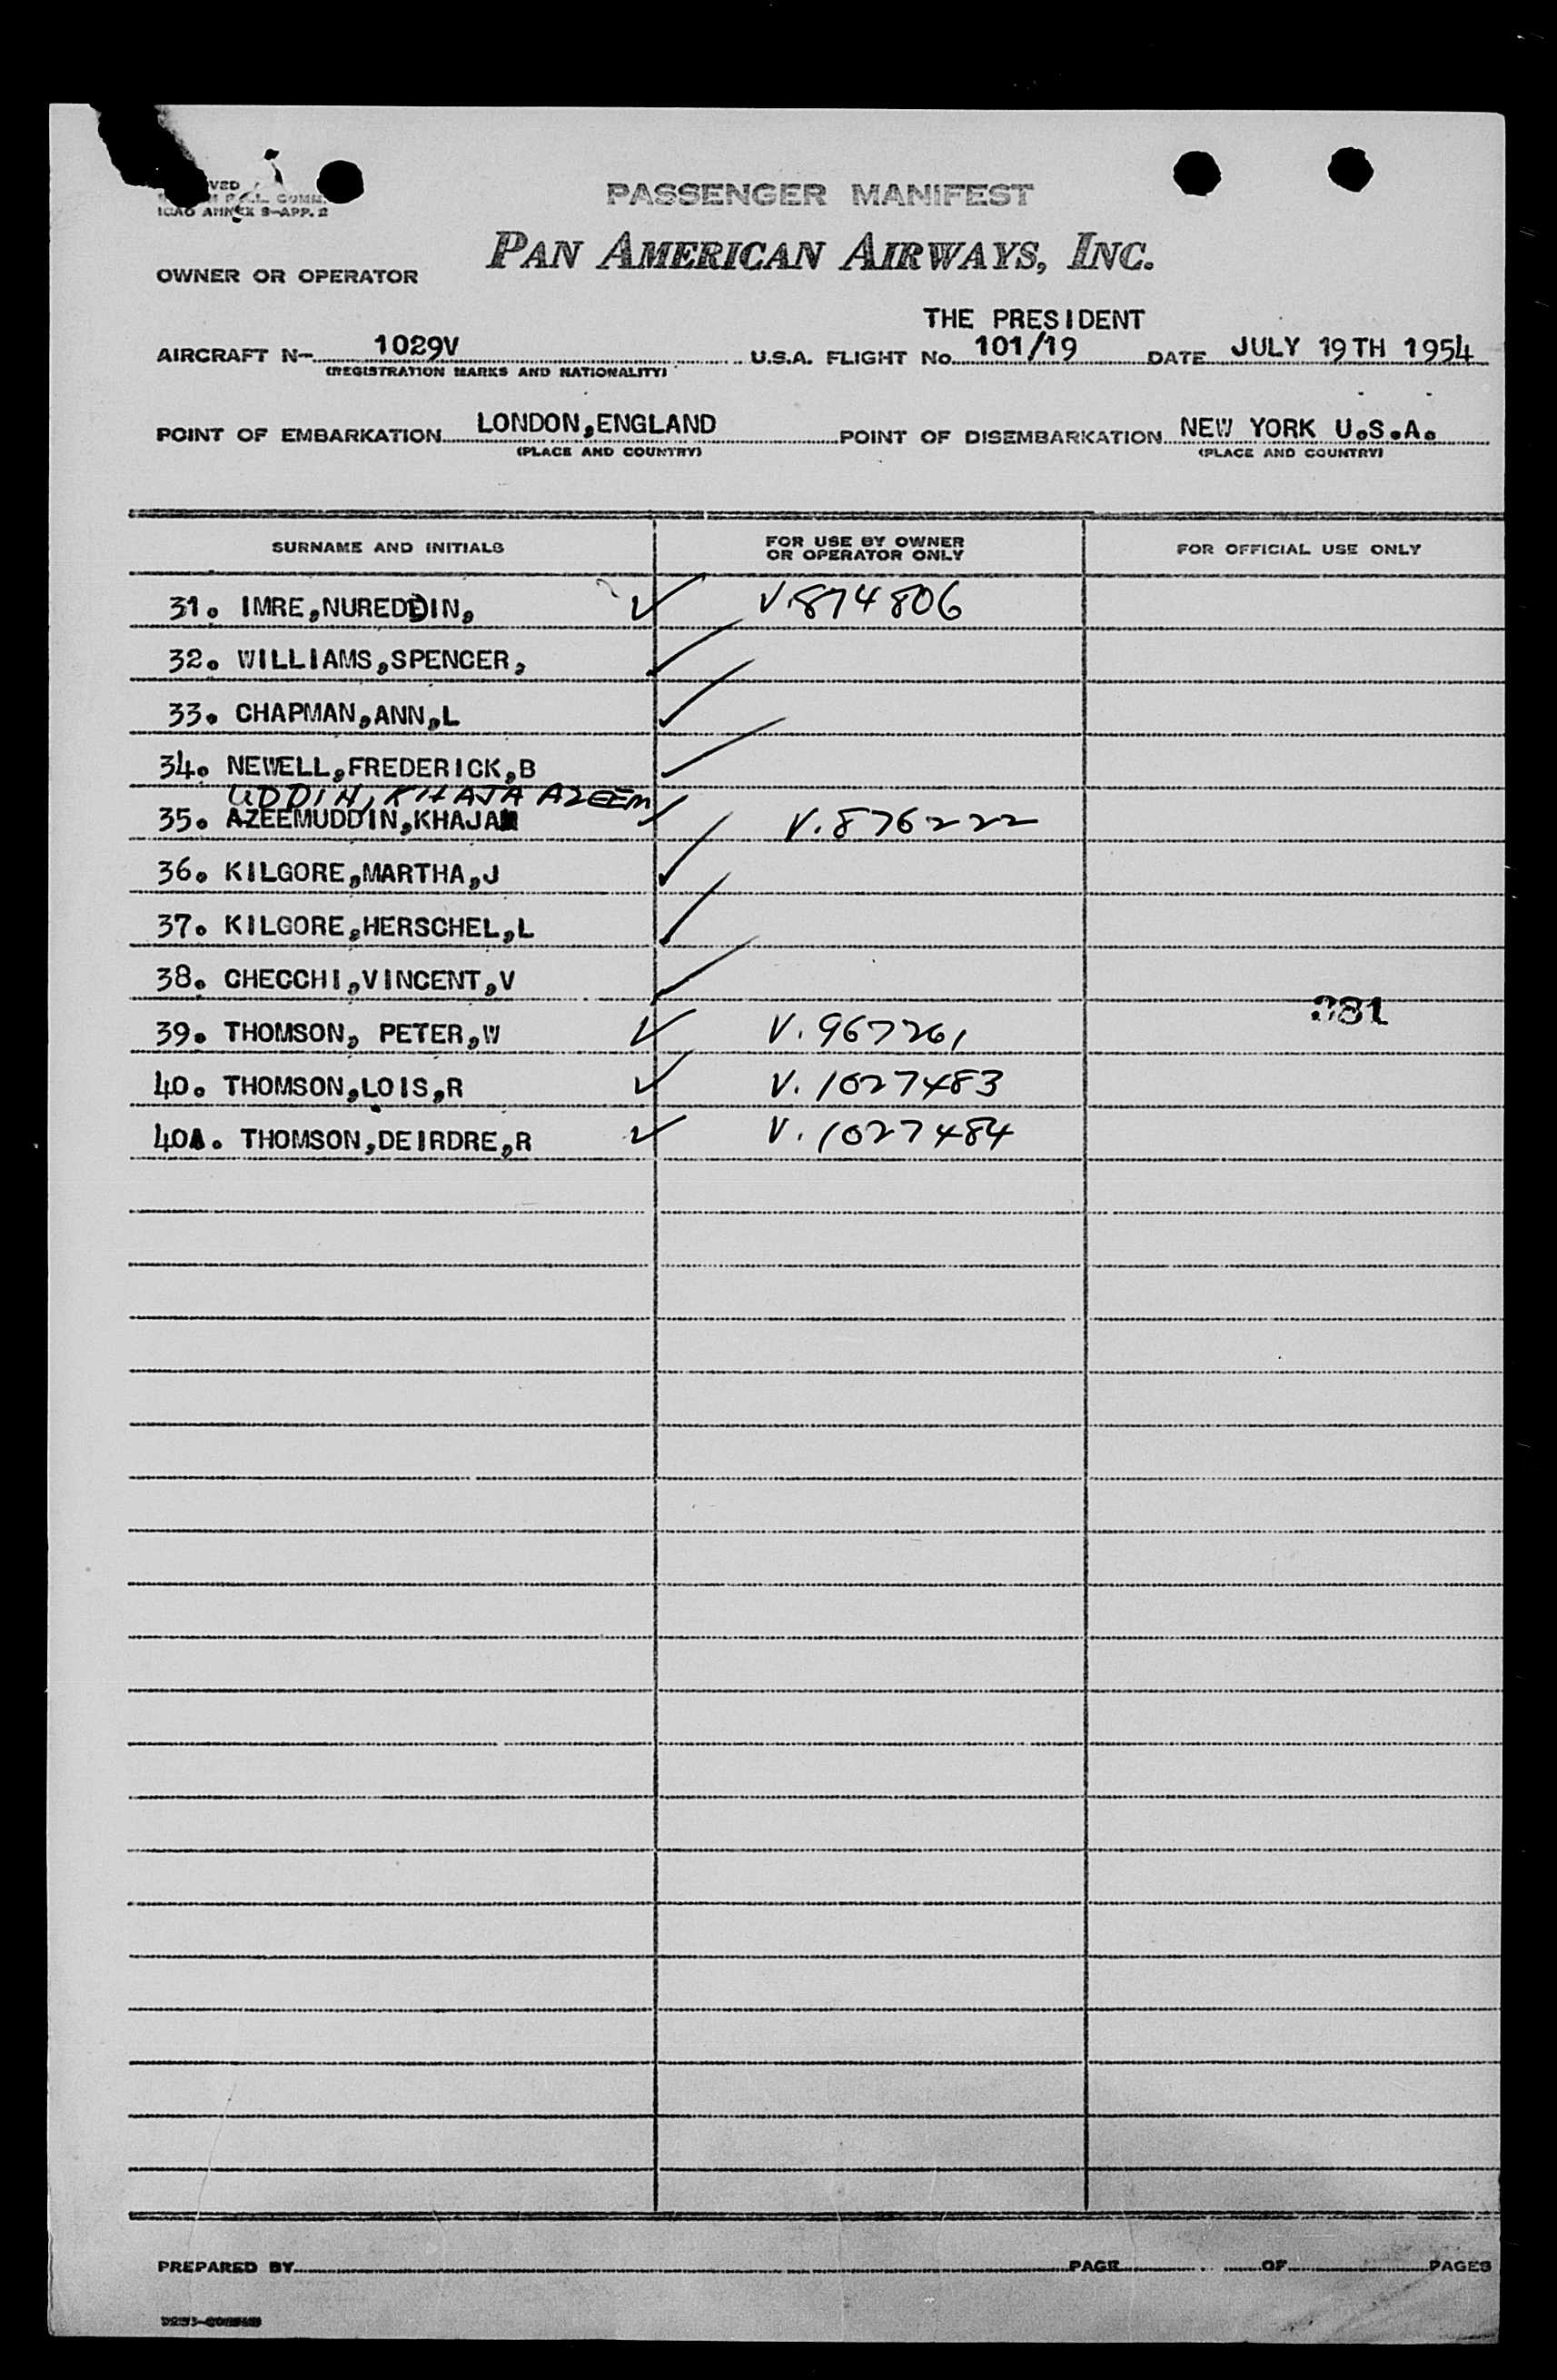 ICAO ANNEX 9-APP. 2
PASSENGER MANIFEST
PAN AMERICAN AIRWAYS, INC.
OWNER OR OPERATOR
THE PRESIDENT
AIRCRAFT N- 1029V U.S.A. FLIGHT No. 101/19 DATE JULY 19TH 1954
(REGISTRATION MARKS AND NATIONALITY)
POINT OF EMBARKATION LONDON,ENGLAND POINT OF DISEMBARKATION NEW YORK U.S.A.
(PLACE AND COUNTRY) (PLACE AND COUNTRY)
SURNAME AND INITIALS FOR USE BY OWNER OR OPERATOR ONLY FOR OFFICIAL USE ONLY
31. IMRE,NUREDDIN, V.874806
32. WILLIAMS,SPENCER,
33. CHAPMAN,ANN,L
34. NEWELL,FREDERICK,B
UDDIN, KHAJA AZEEM
35. AZEEMUDDIN,KHAJA V.876222
36. KILGORE,MARTHA,J
37. KILGORE,HERSCHEL,L
38. CHECCHI,VINCENT,V
381
39. THOMSON, PETER,W V.967261
40. THOMSON,LOIS,R V.1027483
40A. THOMSON,DEIRDRE,R V.1027484
PREPARED BY PAGE OF PAGES